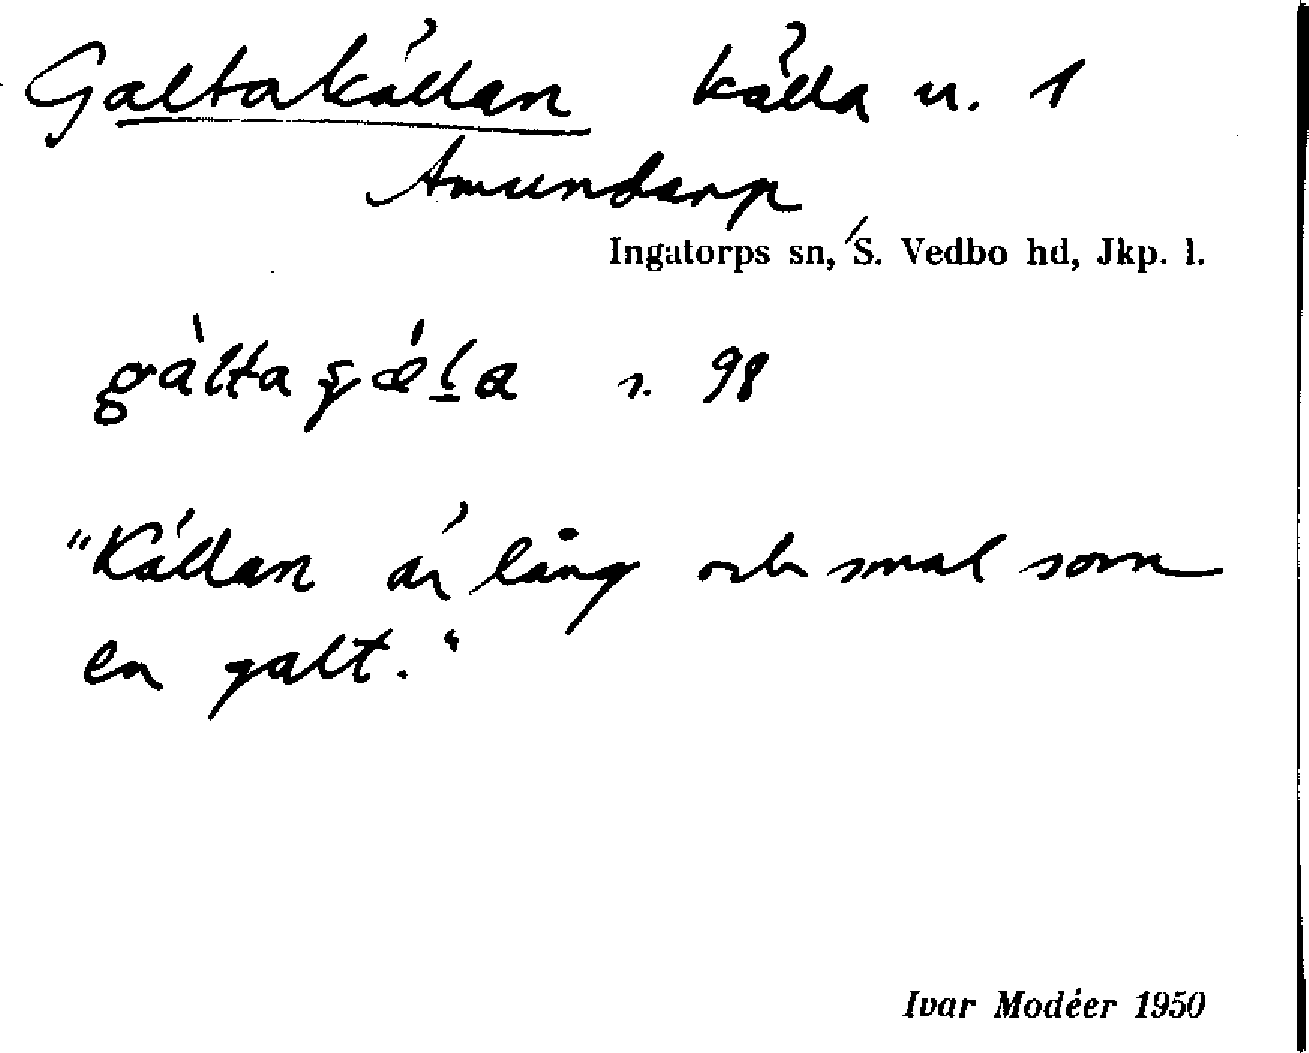 Galtakällan källa u. 1
Amundarp
Ingatorps sn, S. Vedbo hd, Jkp. l.
s. 98
"Källan är lång och smal som
en galt."
Ivar Modéer 1950